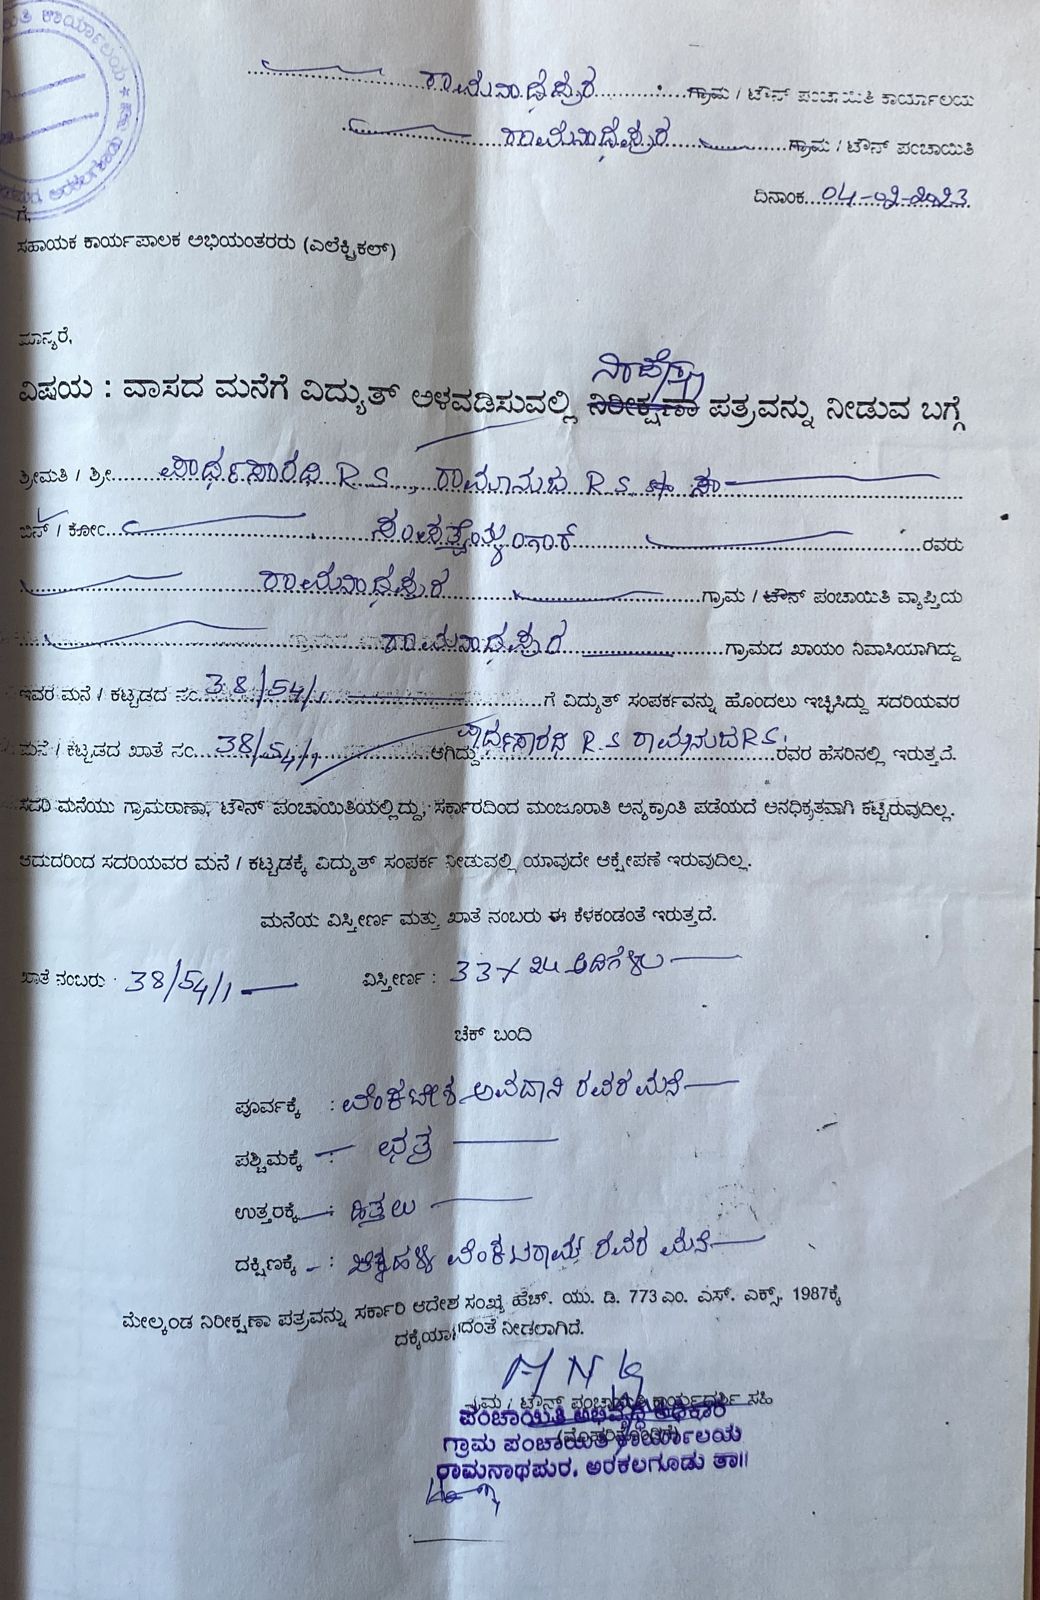 ರಾಮನಾಥಪುರ ಗ್ರಾಮ / ಟೌನ್ ಪಂಚಾಯಿತಿ ಕಾರ್ಯಾಲಯ
ರಾಮನಾಥಪುರ ಗ್ರಾಮ / ಟೌನ್ ಪಂಚಾಯಿತಿ
ದಿನಾಂಕ 04-02-2023
ಗೆ,
ಸಹಾಯಕ ಕಾರ್ಯಪಾಲಕ ಅಭಿಯಂತರರು (ಎಲೆಕ್ಟ್ರಿಕಲ್)
ಮಾನ್ಯರೆ,
ವಿಷಯ : ವಾಸದ ಮನೆಗೆ ವಿದ್ಯುತ್ ಅಳವಡಿಸುವಲ್ಲಿ ನಿರೀಕ್ಷಣಾ ಪತ್ರವನ್ನು ನೀಡುವ ಬಗ್ಗೆ
ಶ್ರೀಮತಿ / ಶ್ರೀ ಪಾರ್ಥಸಾರಥಿ R.S., ರಾಮಾನುಜ R.S.
ಬಿನ್ / ಕೋಂ ರವರು
ರಾಮನಾಥಪುರ ಗ್ರಾಮ / ಟೌನ್ ಪಂಚಾಯಿತಿ ವ್ಯಾಪ್ತಿಯ
ರಾಮನಾಥಪುರ ಗ್ರಾಮದ ಖಾಯಂ ನಿವಾಸಿಯಾಗಿದ್ದು
ಇವರ ಮನೆ / ಕಟ್ಟಡದ ನಂ. 38/54/1 ಗೆ ವಿದ್ಯುತ್ ಸಂಪರ್ಕವನ್ನು ಹೊಂದಲು ಇಚ್ಛಿಸಿದ್ದು ಸದರಿಯವರ
ಮನೆ / ಕಟ್ಟಡದ ಖಾತೆ ನಂ. 38/54/1 ಆಗಿದ್ದು ಪಾರ್ಥಸಾರಥಿ R.S ರಾಮಾನುಜ R.S. ರವರ ಹೆಸರಿನಲ್ಲಿ ಇರುತ್ತದೆ.
ಸದರಿ ಮನೆಯು ಗ್ರಾಮಠಾಣಾ, ಟೌನ್ ಪಂಚಾಯಿತಿಯಲ್ಲಿದ್ದು, ಸರ್ಕಾರದಿಂದ ಮಂಜೂರಾತಿ ಅನ್ಯಕ್ರಾಂತಿ ಪಡೆಯದೆ ಅನಧಿಕೃತವಾಗಿ ಕಟ್ಟಿರುವುದಿಲ್ಲ.
ಆದುದರಿಂದ ಸದರಿಯವರ ಮನೆ / ಕಟ್ಟಡಕ್ಕೆ ವಿದ್ಯುತ್ ಸಂಪರ್ಕ ನೀಡುವಲ್ಲಿ ಯಾವುದೇ ಆಕ್ಷೇಪಣೆ ಇರುವುದಿಲ್ಲ.
ಮನೆಯ ವಿಸ್ತೀರ್ಣ ಮತ್ತು ಖಾತೆ ನಂಬರು ಈ ಕೆಳಕಂಡಂತೆ ಇರುತ್ತದೆ.
ಖಾತೆ ನಂಬರು : 38/54/1 ವಿಸ್ತೀರ್ಣ : 33 X 24 ಅಡಿಗಳು
ಚೆಕ್ ಬಂದಿ
ಪೂರ್ವಕ್ಕೆ : ವೆಂಕಟೇಶ ಅವದಾನಿ ರವರ ಮನೆ
ಪಶ್ಚಿಮಕ್ಕೆ : ಛತ್ರ
ಉತ್ತರಕ್ಕೆ : ಹಿತ್ತಲು
ದಕ್ಷಿಣಕ್ಕೆ : ವೆಂಕಟರಾಮ್ ರವರ ಮನೆ
ಮೇಲ್ಕಂಡ ನಿರೀಕ್ಷಣಾ ಪತ್ರವನ್ನು ಸರ್ಕಾರಿ ಆದೇಶ ಸಂಖ್ಯೆ ಹೆಚ್. ಯು. ಡಿ. 773 ಎಂ. ಎಸ್. ಎಕ್ಸ್. 1987ಕ್ಕೆ
ನೀಡಲಾಗಿದೆ.
ಗ್ರಾಮ / ಟೌನ್ ಪಂಚಾಯಿತಿ ಕಾರ್ಯದರ್ಶಿ ಸಹಿ
ಪಂಚಾಯಿತಿ ಅಭಿವೃದ್ಧಿ ಅಧಿಕಾರಿ
ಗ್ರಾಮ ಪಂಚಾಯಿತಿ ಕಾರ್ಯಾಲಯ
ರಾಮನಾಥಪುರ, ಅರಕಲಗೂಡು ತಾ||